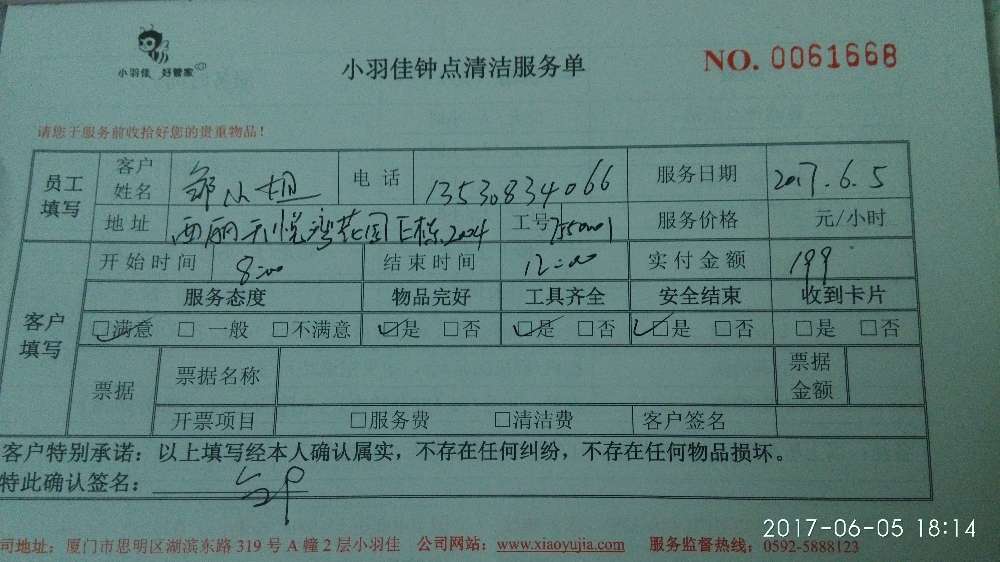 小羽佳 好管家
小羽佳钟点清洁服务单
NO. 0061668
请您于服务前收拾好您的贵重物品！
员工填写
客户姓名 邹小姐 电话 13530834066 服务日期 2017.6.5
地址 西丽天悦湾花园E栋2024 工号 服务价格 元/小时
客户填写
开始时间 8:00 结束时间 12:00 实付金额 199
服务态度 物品完好 工具齐全 安全结束 收到卡片
□满意 □一般 □不满意 □是 □否 □是 □否 □是 □否 □是 □否
票据 票据名称 票据金额
开票项目 □服务费 □清洁费 客户签名
客户特别承诺：以上填写经本人确认属实，不存在任何纠纷，不存在任何物品损坏。
特此确认签名：邹
司地址：厦门市思明区湖滨东路 319 号 A 幢 2 层小羽佳 公司网站：www.xiaoyujia.com 服务监督热线：0592-5888123
2017-06-05 18:14